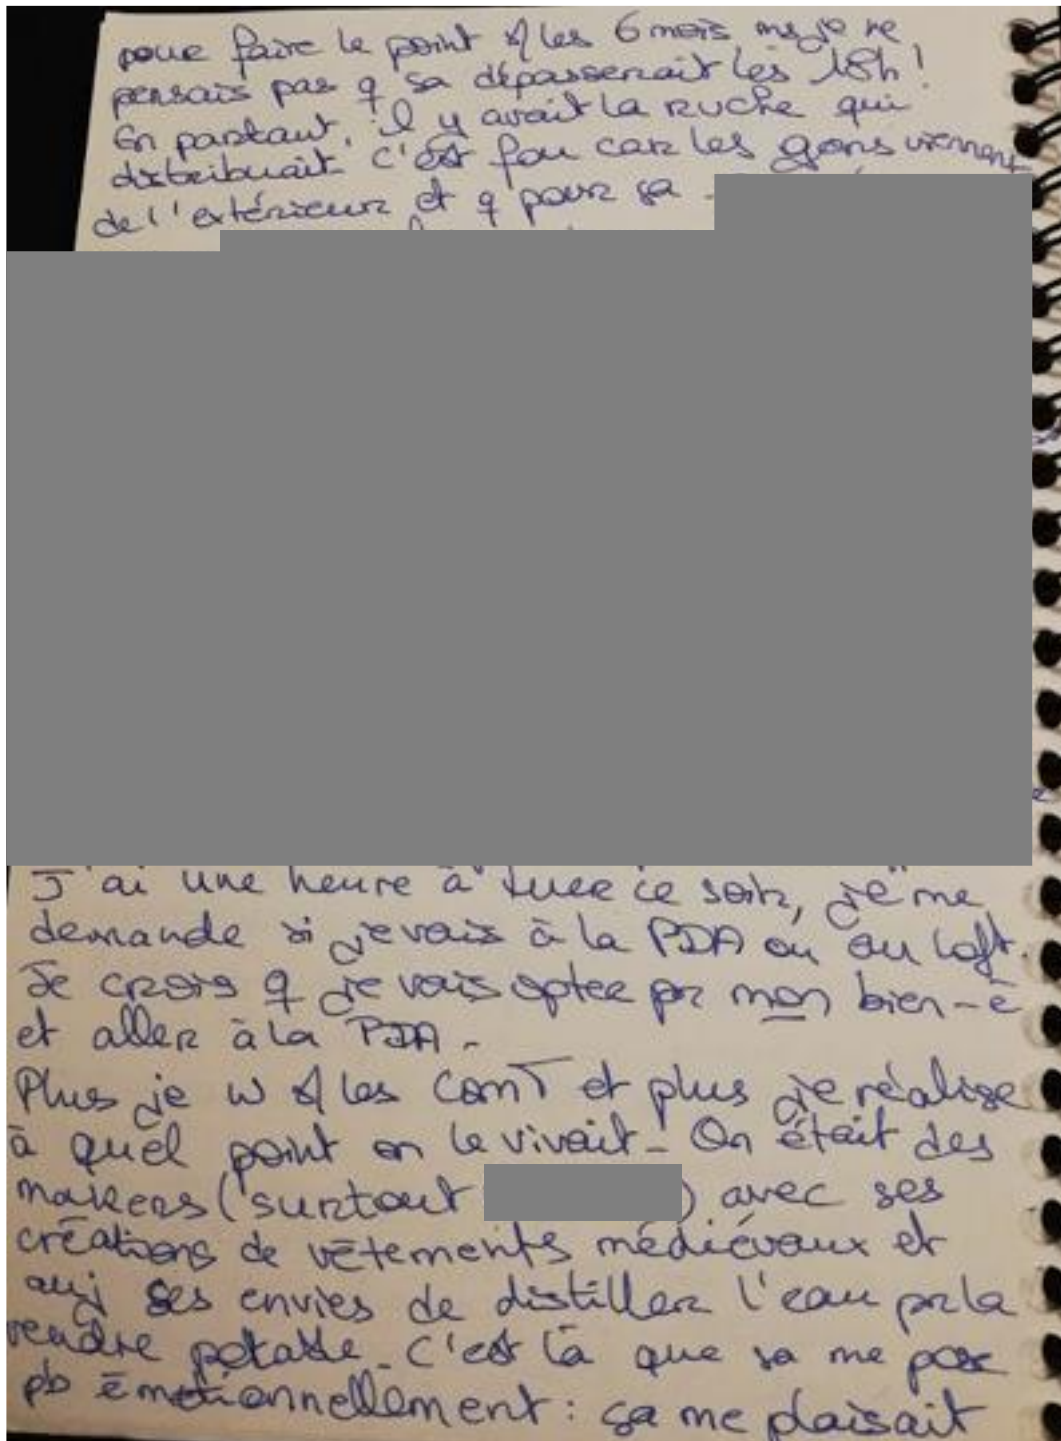 pour faire le point s/ les 6 mois ms je ne
pensais pas q sa dépasserait les 18h!
En partant, il y avait la ruche qui
distribuait. C'est fou car les gens viennent
de l'extérieur et q pour sa
J'ai une heure à tuer ce soir, je me
demande si je vais à la PDA ou au Loft.
Je crois q je vais opter pr mon bien-ê
et aller à la PDA.
Plus je w s/ les ComT et plus je réalise
à quel point on le vivait. On était des
makers (surtout ) avec ses
créations de vêtements médiévaux et
aussi ses envies de distiller l'eau pr la
rendre potable. C'est là que sa me pose
pb émotionnellement : sa me plaisait